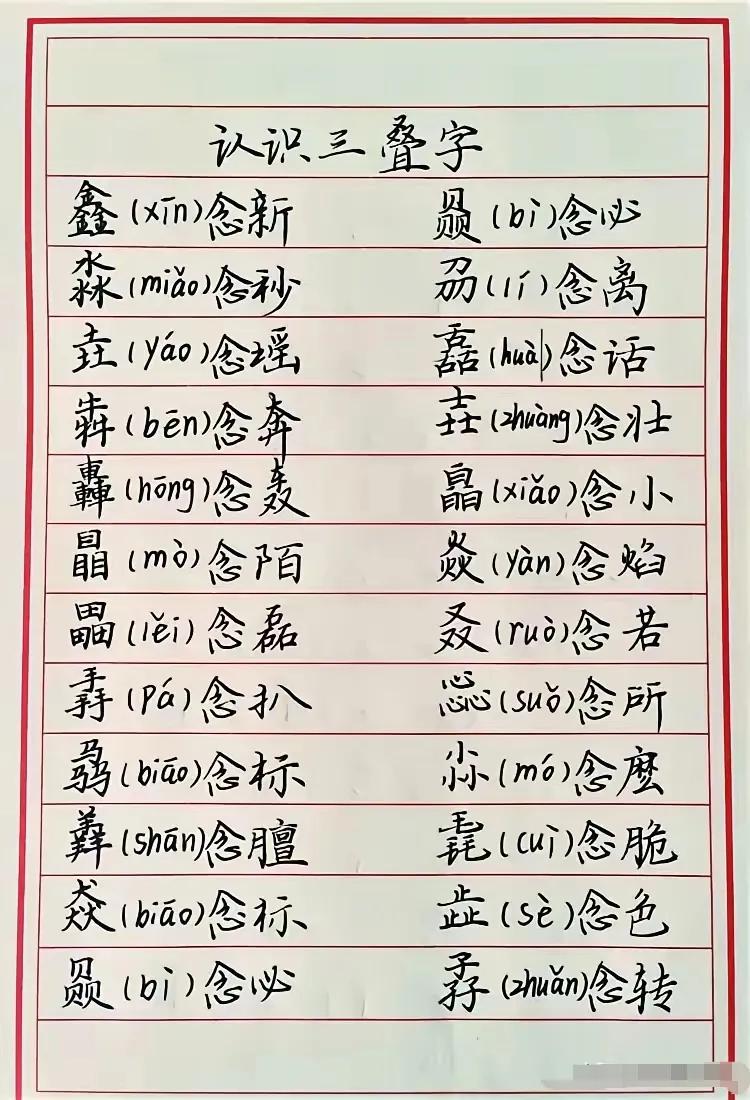 认识三叠字
鑫(xīn)念新 赑(bì)念必
淼(miǎo)念秒 刕(lí)念离
垚(yáo)念瑶 舙(huà)念话
犇(bēn)念奔 壵(zhuàng)念壮
轟(hōng)念轰 皛(xiǎo)念小
瞐(mò)念陌 焱(yàn)念焰
畾(lěi)念磊 叒(ruò)念若
掱(pá)念扒 惢(suǒ)念所
骉(biāo)念标 尛(mó)念麽
羴(shān)念膻 毳(cuì)念脆
猋(biāo)念标 歮(sè)念色
赑(bì)念必 孨(zhuǎn)念转